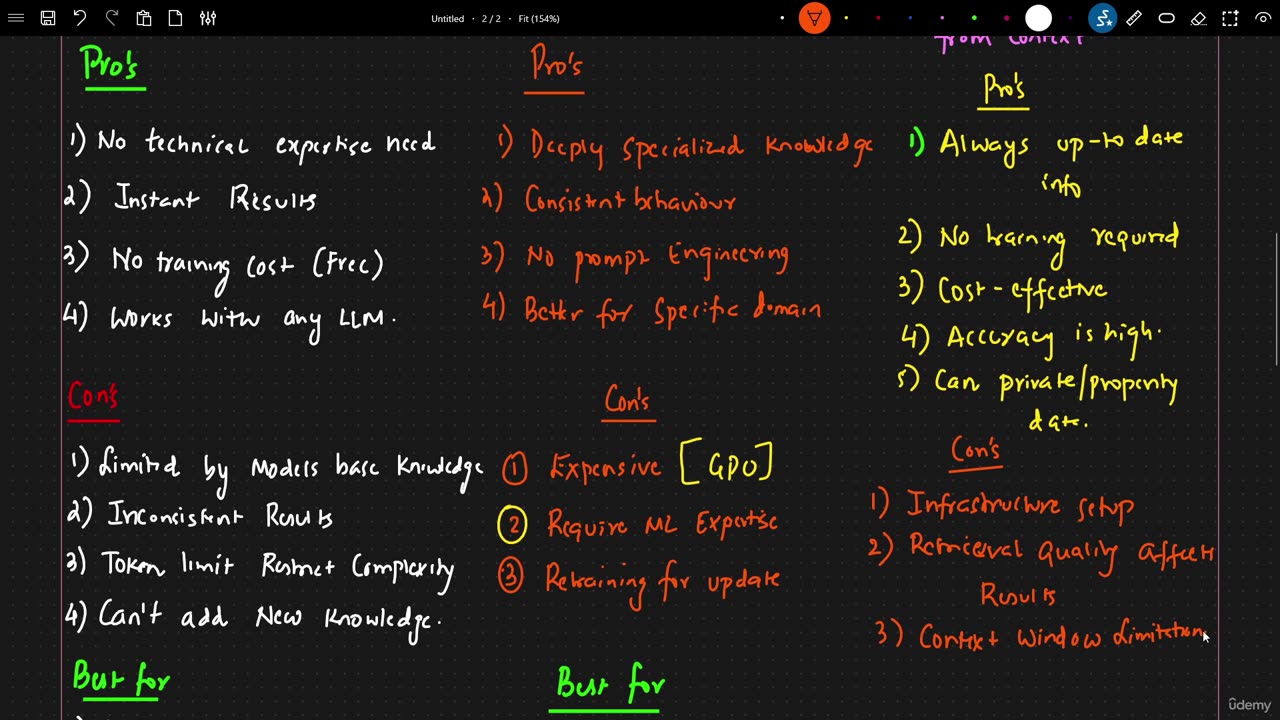 Untitled • 2 / 2 • Fit (154%)
from context
Pro's
1) No technical expertise need
2) Instant Results
3) No training cost (Free)
4) Works with any LLM.
Con's
1) Limited by Models base knowledge
2) Inconsistent Results
3) Token limit Restrict Complexity
4) Can't add New knowledge.
Best for
Pro's
1) Deeply specialized knowledge
2) Consistent behaviour
3) No prompt Engineering
4) Better for specific domain
Con's
1 Expensive [GPU]
2 Require ML Expertise
3 Retraining for update
Best for
Pro's
1) Always up-to date
info
2) No training required
3) Cost-effective
4) Accuracy is high.
5) Can private/property
date.
Con's
1) Infrastructure setup
2) Retrieval quality affects
Results
3) Context window limitation
ûdemy